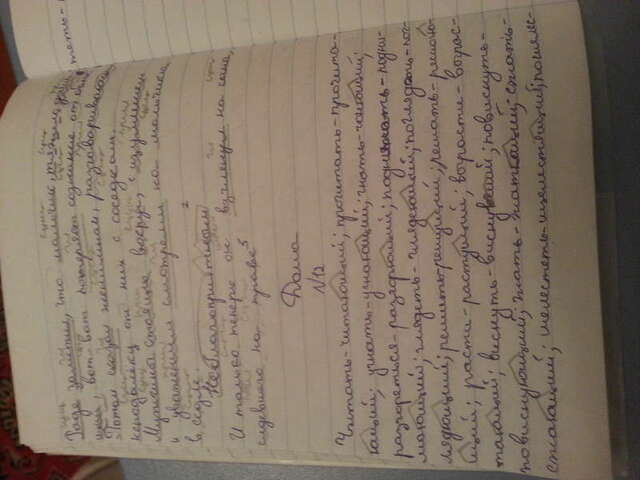 Радо заметил, что мальчик,
вот-вот потеряет сознание от
Потом сказал женщинам, разговаривающим
неподалёку от них с соседкам.
Мужчины стоящие вокруг, с изумлением
и уважением смотрели на мальчика
в седле.
Неблагоприятный 2
И только теперь он взглянул на сына,
сидевшего на траве 5
Дома
N12
Читать-читающий; прочитать-прочита-
ющий; узнать-узнающий; гнать-
разгореться-разгорающий; поднимать-подни-
мающий; глядеть-глядеющий; поглядеть-пог-
лядеющий; решить-решущий; решать-решаю-
щий; расти-растущий; вырасти-вырас-
тающий; виснуть-виснувший; повиснуть-
повиснующий; жать-жающий; сжать-
сжающий; шелестеть-шелестящий; пошелес-